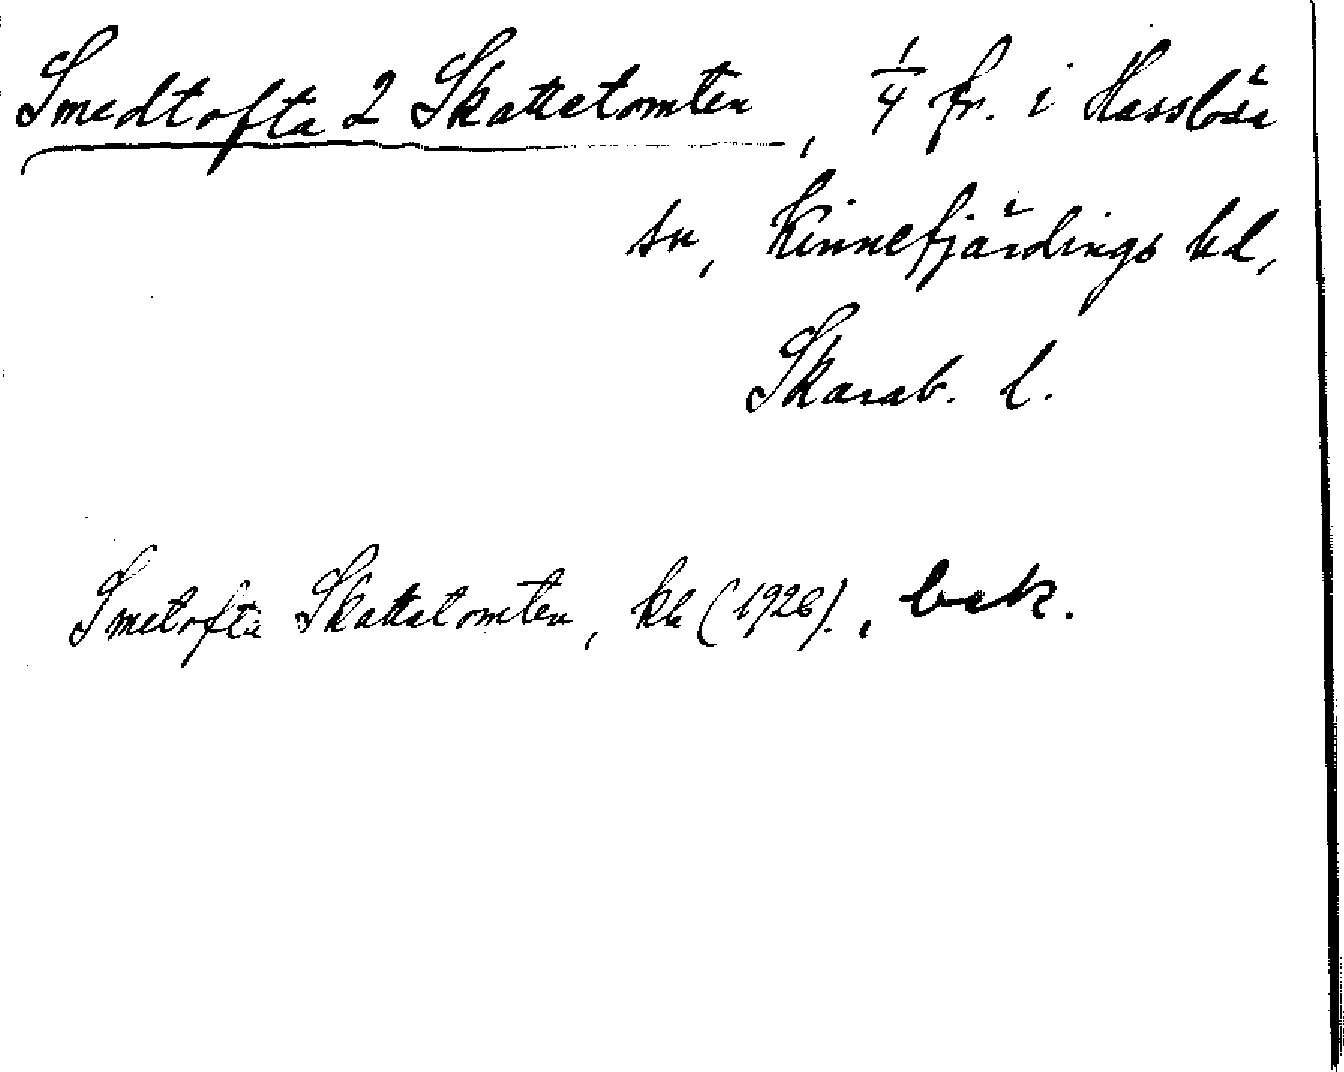 Smedtofta 2 Skattetomten, 1/4 fr. i Hasslösa
sn, Kinnefjärdings hd,
Skarab. l.
Smetofta Skattetomten, kh (1926)., bek.